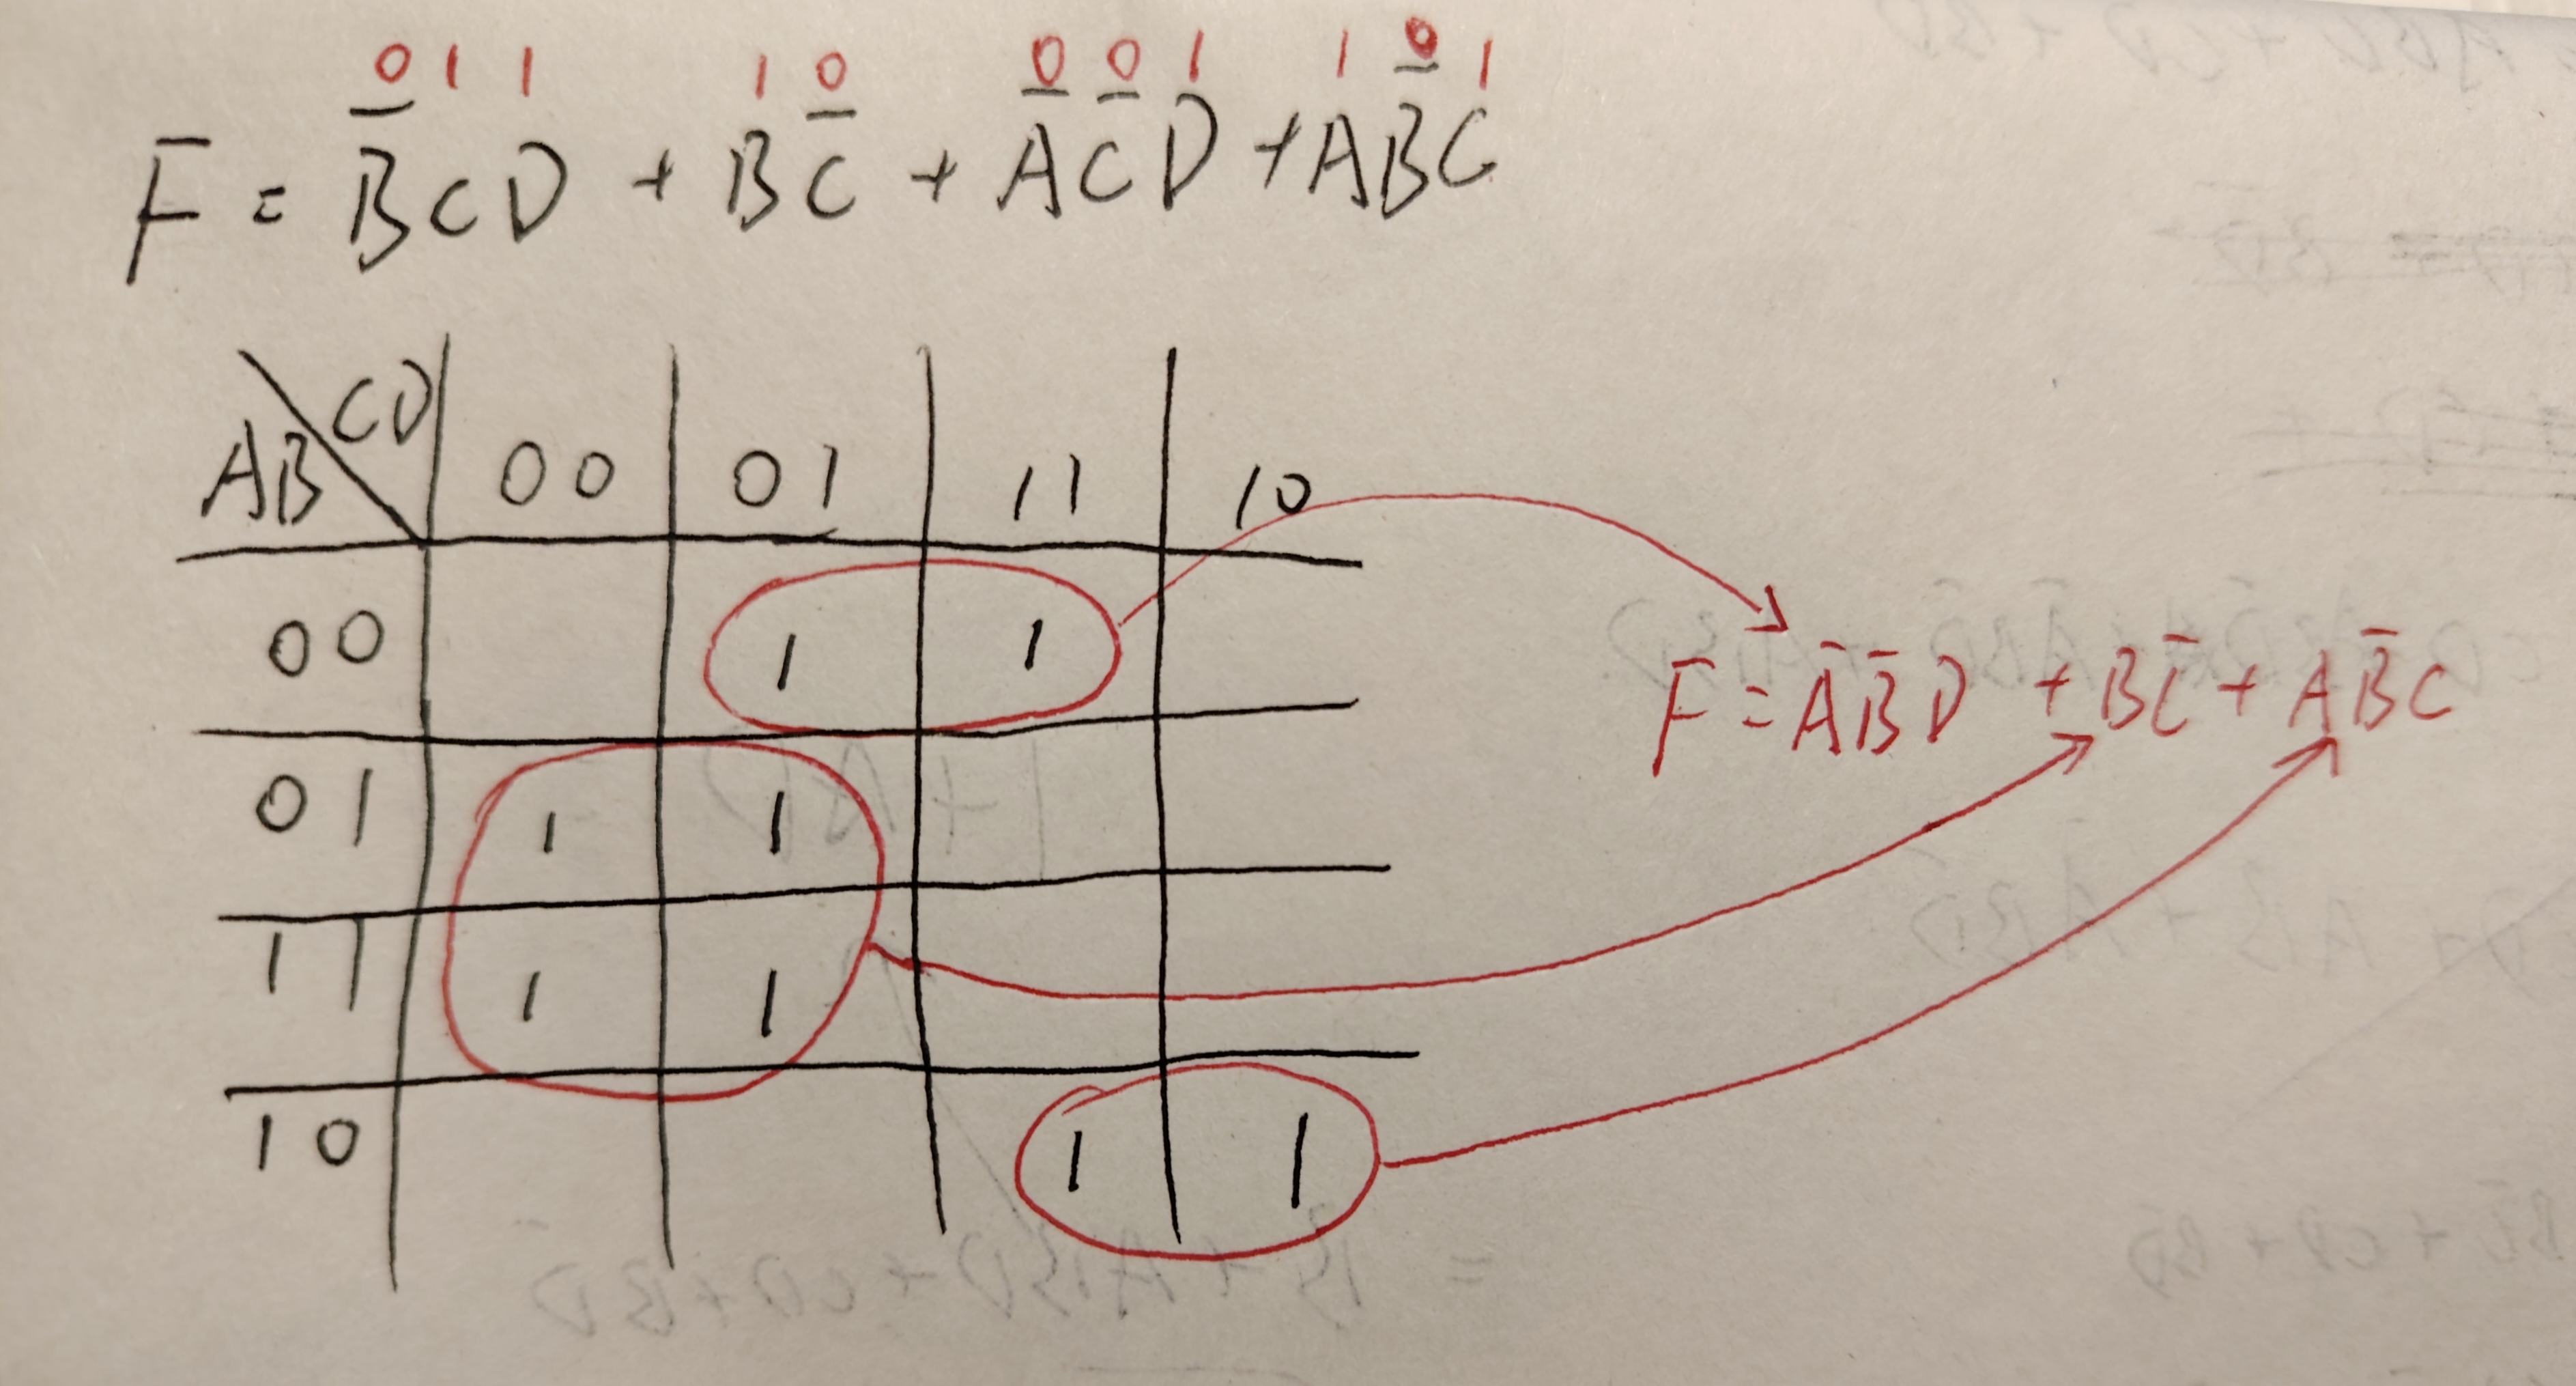 0 1 1 1 0 0 0 1 1 0 1
F̅ = B̅CD + BC̅ + A̅C̅D + AB̅C
AB\CD 00 01 11 10
00 1 1
01 1 1
11 1 1
10 1 1
F̅ = A̅B̅D + BC̅ + AB̅C